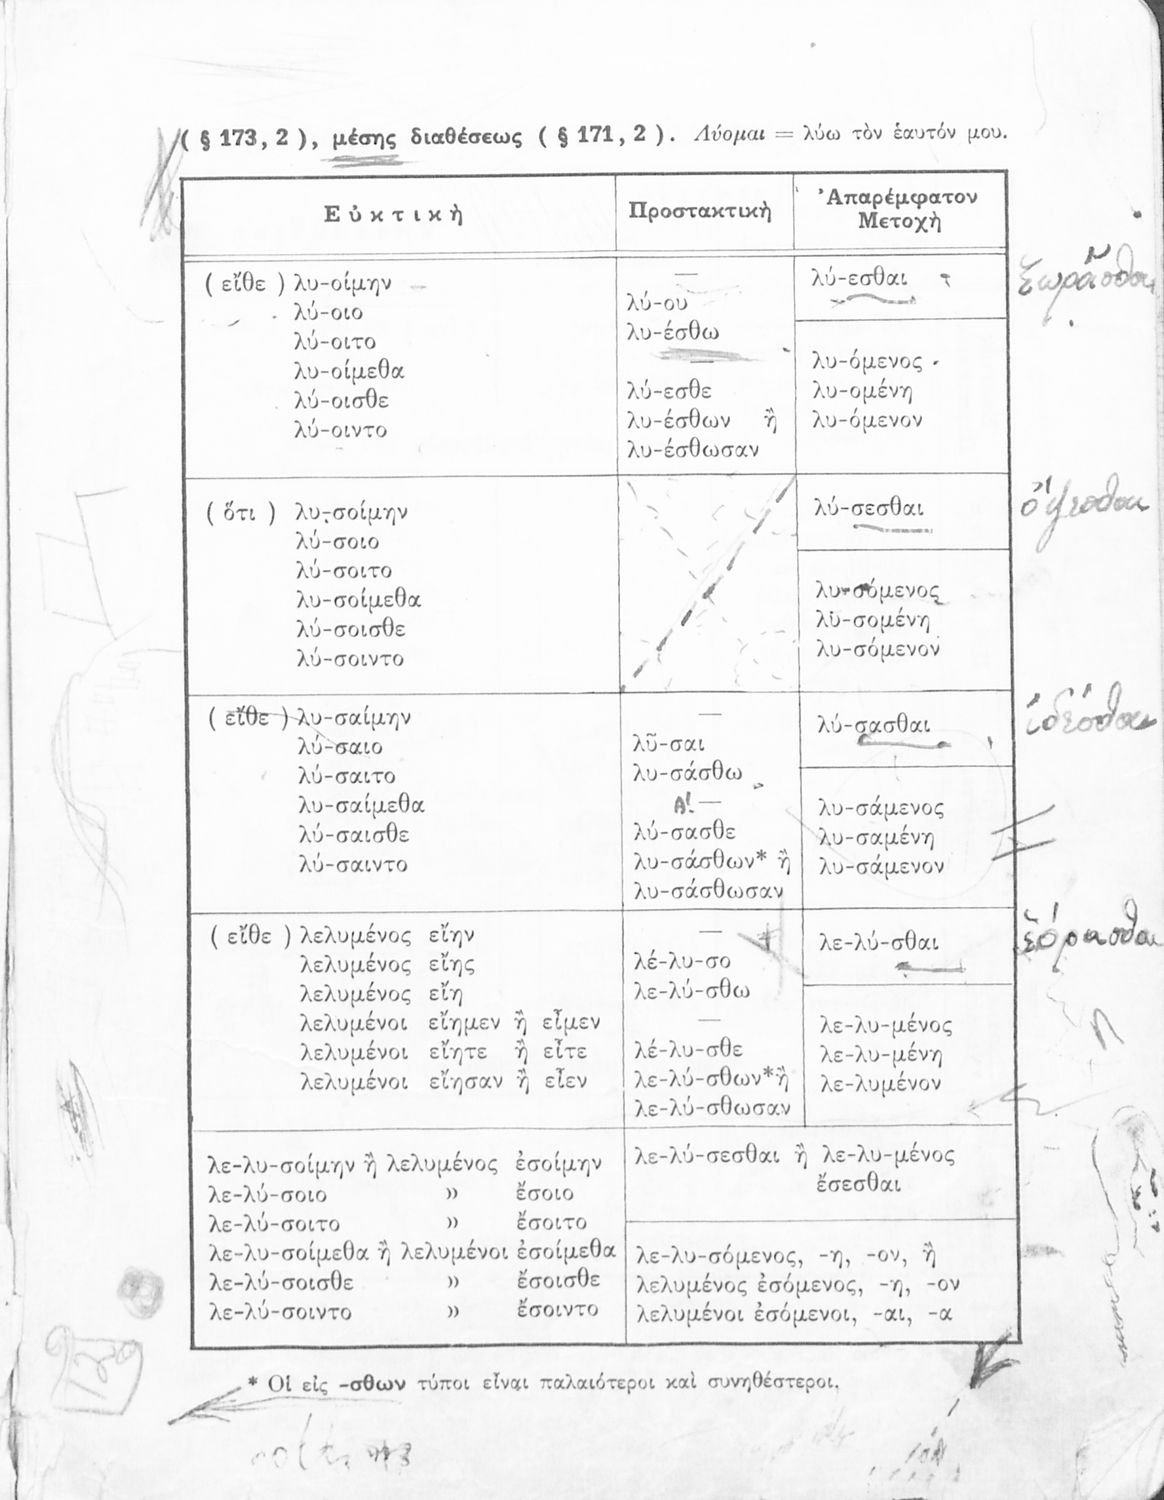 ( § 173, 2 ), μέσης διαθέσεως ( § 171, 2 ). Λύομαι = λύω τὸν ἑαυτόν μου.
Εὐκτικὴ
Προστακτικὴ
Ἀπαρέμφατον
Μετοχὴ
( εἴθε ) λυ-οίμην
λύ-οιο
λύ-οιτο
λυ-οίμεθα
λύ-οισθε
λύ-οιντο
—
λύ-ου
λυ-έσθω
—
λύ-εσθε
λυ-έσθων ἢ
λυ-έσθωσαν
λύ-εσθαι
λυ-όμενος
λυ-ομένη
λυ-όμενον
( ὅτι ) λυ-σοίμην
λύ-σοιο
λύ-σοιτο
λυ-σοίμεθα
λύ-σοισθε
λύ-σοιντο
λύ-σεσθαι
ὄψεσθαι
λυ-σόμενος
λυ-σομένη
λυ-σόμενον
( εἴθε ) λυ-σαίμην
λύ-σαιο
λύ-σαιτο
λυ-σαίμεθα
λύ-σαισθε
λύ-σαιντο
—
λῦ-σαι
λυ-σάσθω
Α! —
λύ-σασθε
λυ-σάσθων* ἢ
λυ-σάσθωσαν
λύ-σασθαι
ἰδέσθαι
λυ-σάμενος
λυ-σαμένη
λυ-σάμενον
( εἴθε ) λελυμένος εἴην
λελυμένος εἴης
λελυμένος εἴη
λελυμένοι εἴημεν ἢ εἶμεν
λελυμένοι εἴητε ἢ εἶτε
λελυμένοι εἴησαν ἢ εἶεν
—
λέ-λυ-σο
λε-λύ-σθω
—
λέ-λυ-σθε
λε-λύ-σθων* ἢ
λε-λύ-σθωσαν
λε-λύ-σθαι
λε-λυ-μένος
λε-λυ-μένη
λε-λυμένον
λε-λυ-σοίμην ἢ λελυμένος ἐσοίμην
λε-λύ-σοιο » ἔσοιο
λε-λύ-σοιτο » ἔσοιτο
λε-λυ-σοίμεθα ἢ λελυμένοι ἐσοίμεθα
λε-λύ-σοισθε » ἔσοισθε
λε-λύ-σοιντο » ἔσοιντο
λε-λύ-σεσθαι ἢ λε-λυ-μένος
ἔσεσθαι
λε-λυ-σόμενος, -η, -ον, ἢ
λελυμένος ἐσόμενος, -η, -ον
λελυμένοι ἐσόμενοι, -αι, -α
* Οἱ εἰς -σθων τύποι εἶναι παλαιότεροι καὶ συνηθέστεροι.